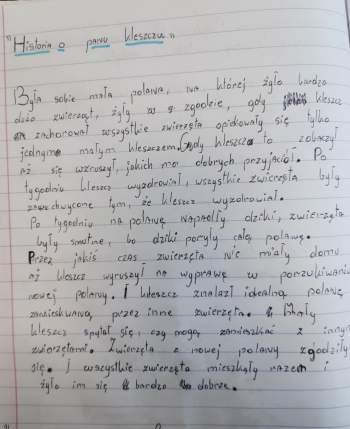 "Historia o panu kleszczu"
Była sobie mała polana, na której żyło bardzo
dużo zwierząt, żyły w zgodzie, gdy kleszcz
zachorował wszystkie zwierzęta opiekowały się tylko
jednym małym kleszczem. Gdy kleszcz to zobaczył
aż się wzruszył, jakich ma dobrych przyjaciół. Po
tygodniu kleszcz wyzdrowiał, wszystkie zwierzęta były
zachwycone tym, że kleszcz wyzdrowiał.
Po tygodniu na polanę napadły dziki, zwierzęta
były smutne, bo dziki poryły całą polanę.
Przez jakiś czas zwierzęta nie miały domu
aż kleszcz wyruszył na wyprawę w poszukiwaniu
nowej polany. I kleszcz znalazł idealną polanę
zamieszkwaną przez inne zwierzęta. Mały
kleszcz spytał się, czy mogą zamieszkać z innymi
zwierzętami. Zwierzęta z nowej polany zgodziły
się. I wszystkie zwierzęta mieszkały razem i
żyło im się bardzo dobrze.